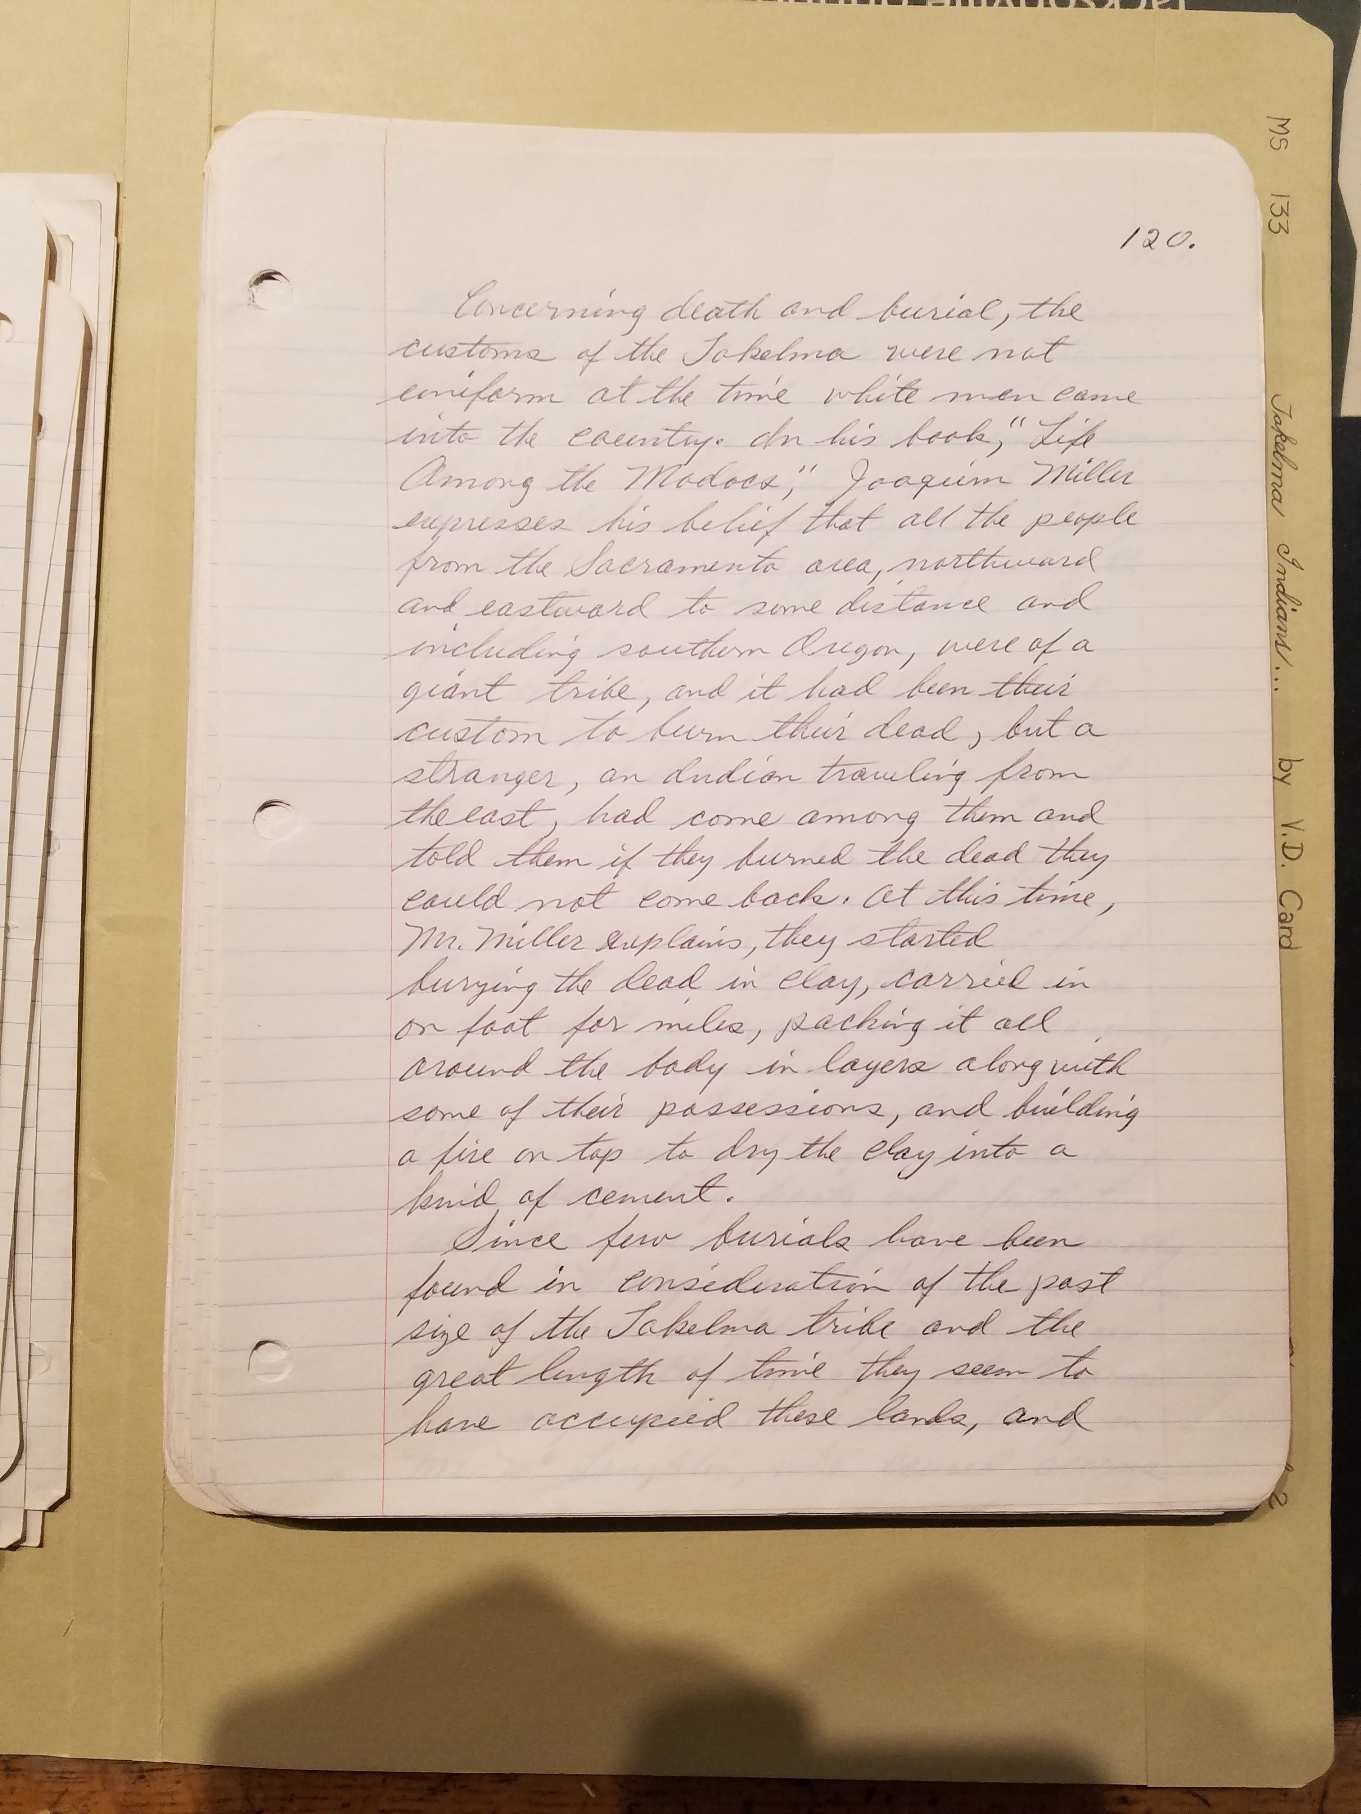 120.
Concerning death and burial, the
customs of the Takelma were not
uniform at the time white men came
into the country. In his book, "Life
Among the Modocs," Joaquim Miller
expresses his belief that all the people
from the Sacramento area, northward
and eastward to some distance and
including southern Oregon, were of a
giant tribe, and it had been their
custom to burn their dead, but a
stranger, an Indian traveling from
the east, had come among them and
told them if they burned the dead they
could not come back. At this time,
Mr. Miller explains, they started
burying the dead in clay, carried in
on foot for miles, packing it all
around the body in layers along with
some of their possessions, and building
a fire on top to dry the clay into a
kind of cement.
Since few burials have been
found in consideration of the past
size of the Takelma tribe and the
great length of time they seem to
have occupied these lands, and
MS 133 Takelma Indians... by V.D. Card
2